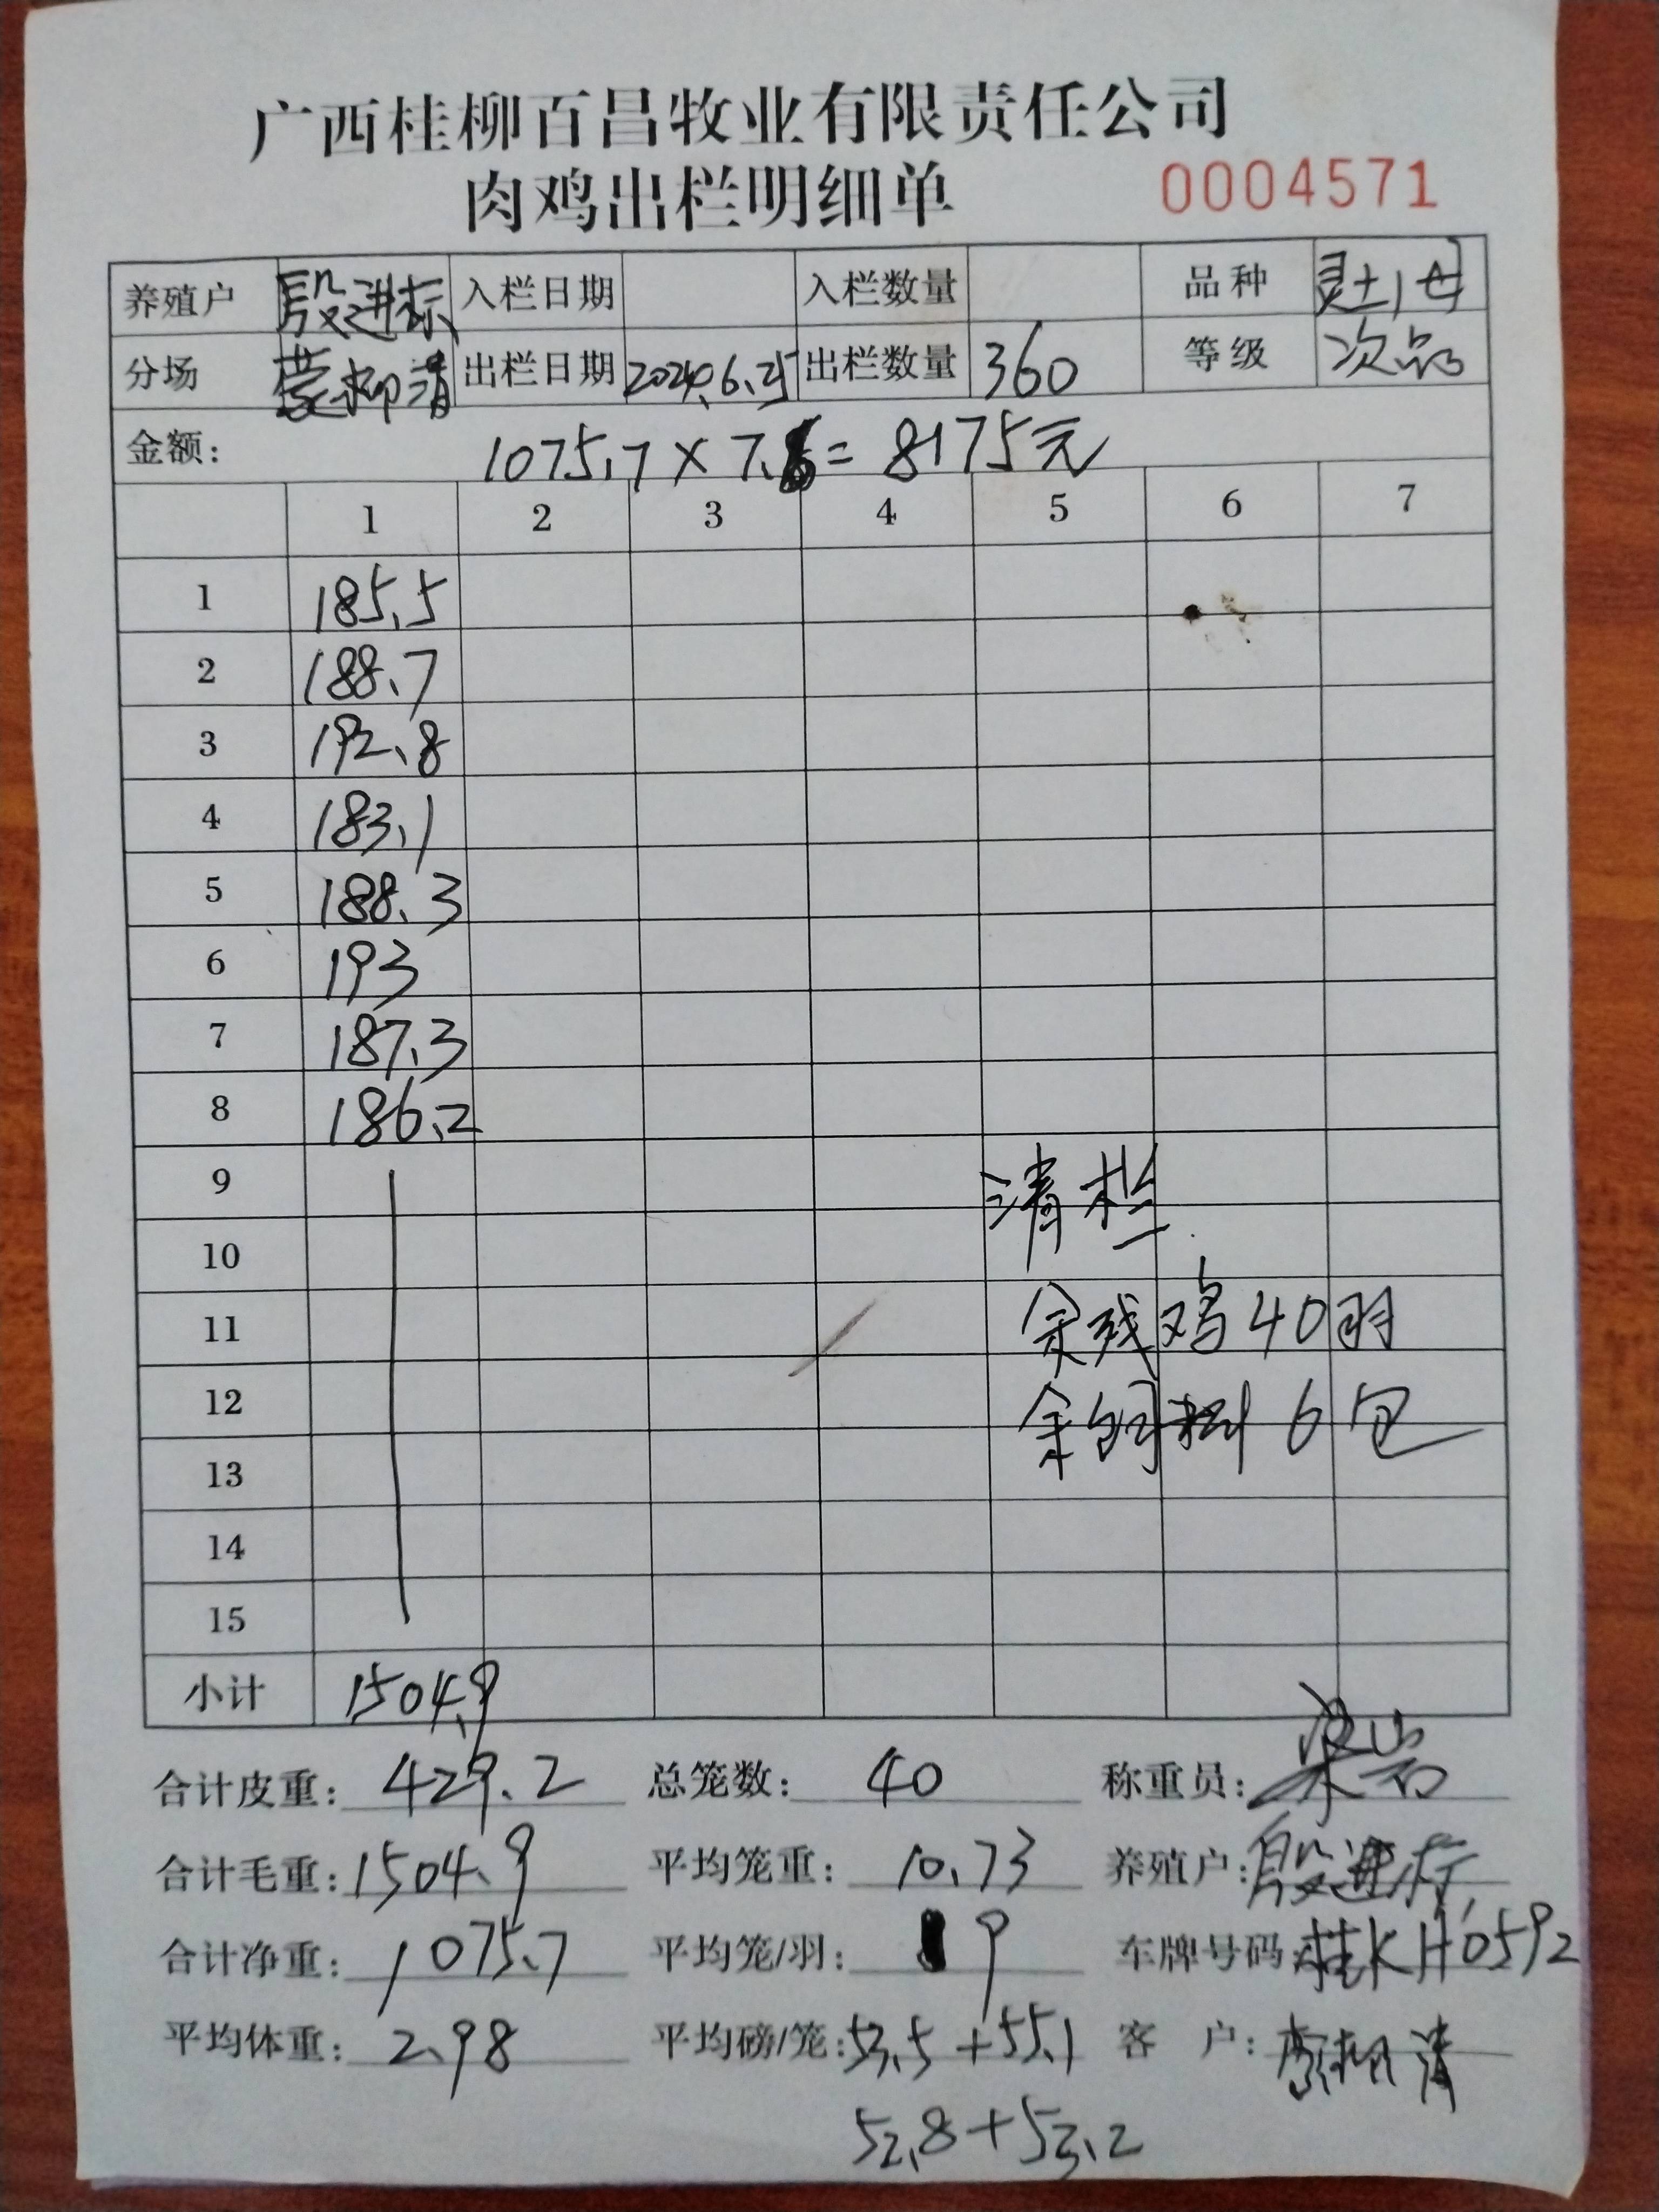 广西桂柳百昌牧业有限责任公司
肉鸡出栏明细单 0004571
养殖户 段进标 入栏日期 入栏数量 品种 灵土1母
分场 蒙柳清 出栏日期 2024.6.25 出栏数量 360 等级 次品
金额: 1075.7×7.6=8175元
1 2 3 4 5 6 7
1 185.5
2 188.7
3 192.8
4 183.1
5 188.3
6 193
7 187.3
8 186.2
9 清栏
10
11 余残鸡40羽
12 余饲料6包
13
14
15
小计 1504.9
合计皮重: 429.2 总笼数: 40 称重员:
合计毛重: 1504.9 平均笼重: 10.73 养殖户: 段进标
合计净重: 1075.7 平均笼/羽: 9 车牌号码: 桂KH0592
平均体重: 2.98 平均磅/笼: 53.5+55.1 客户:
52.8+53.2